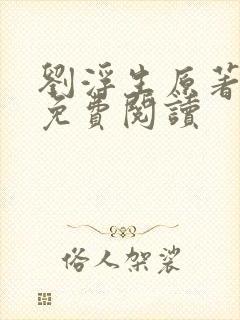 劉浮生原著
免費閱讀
俗人架裟